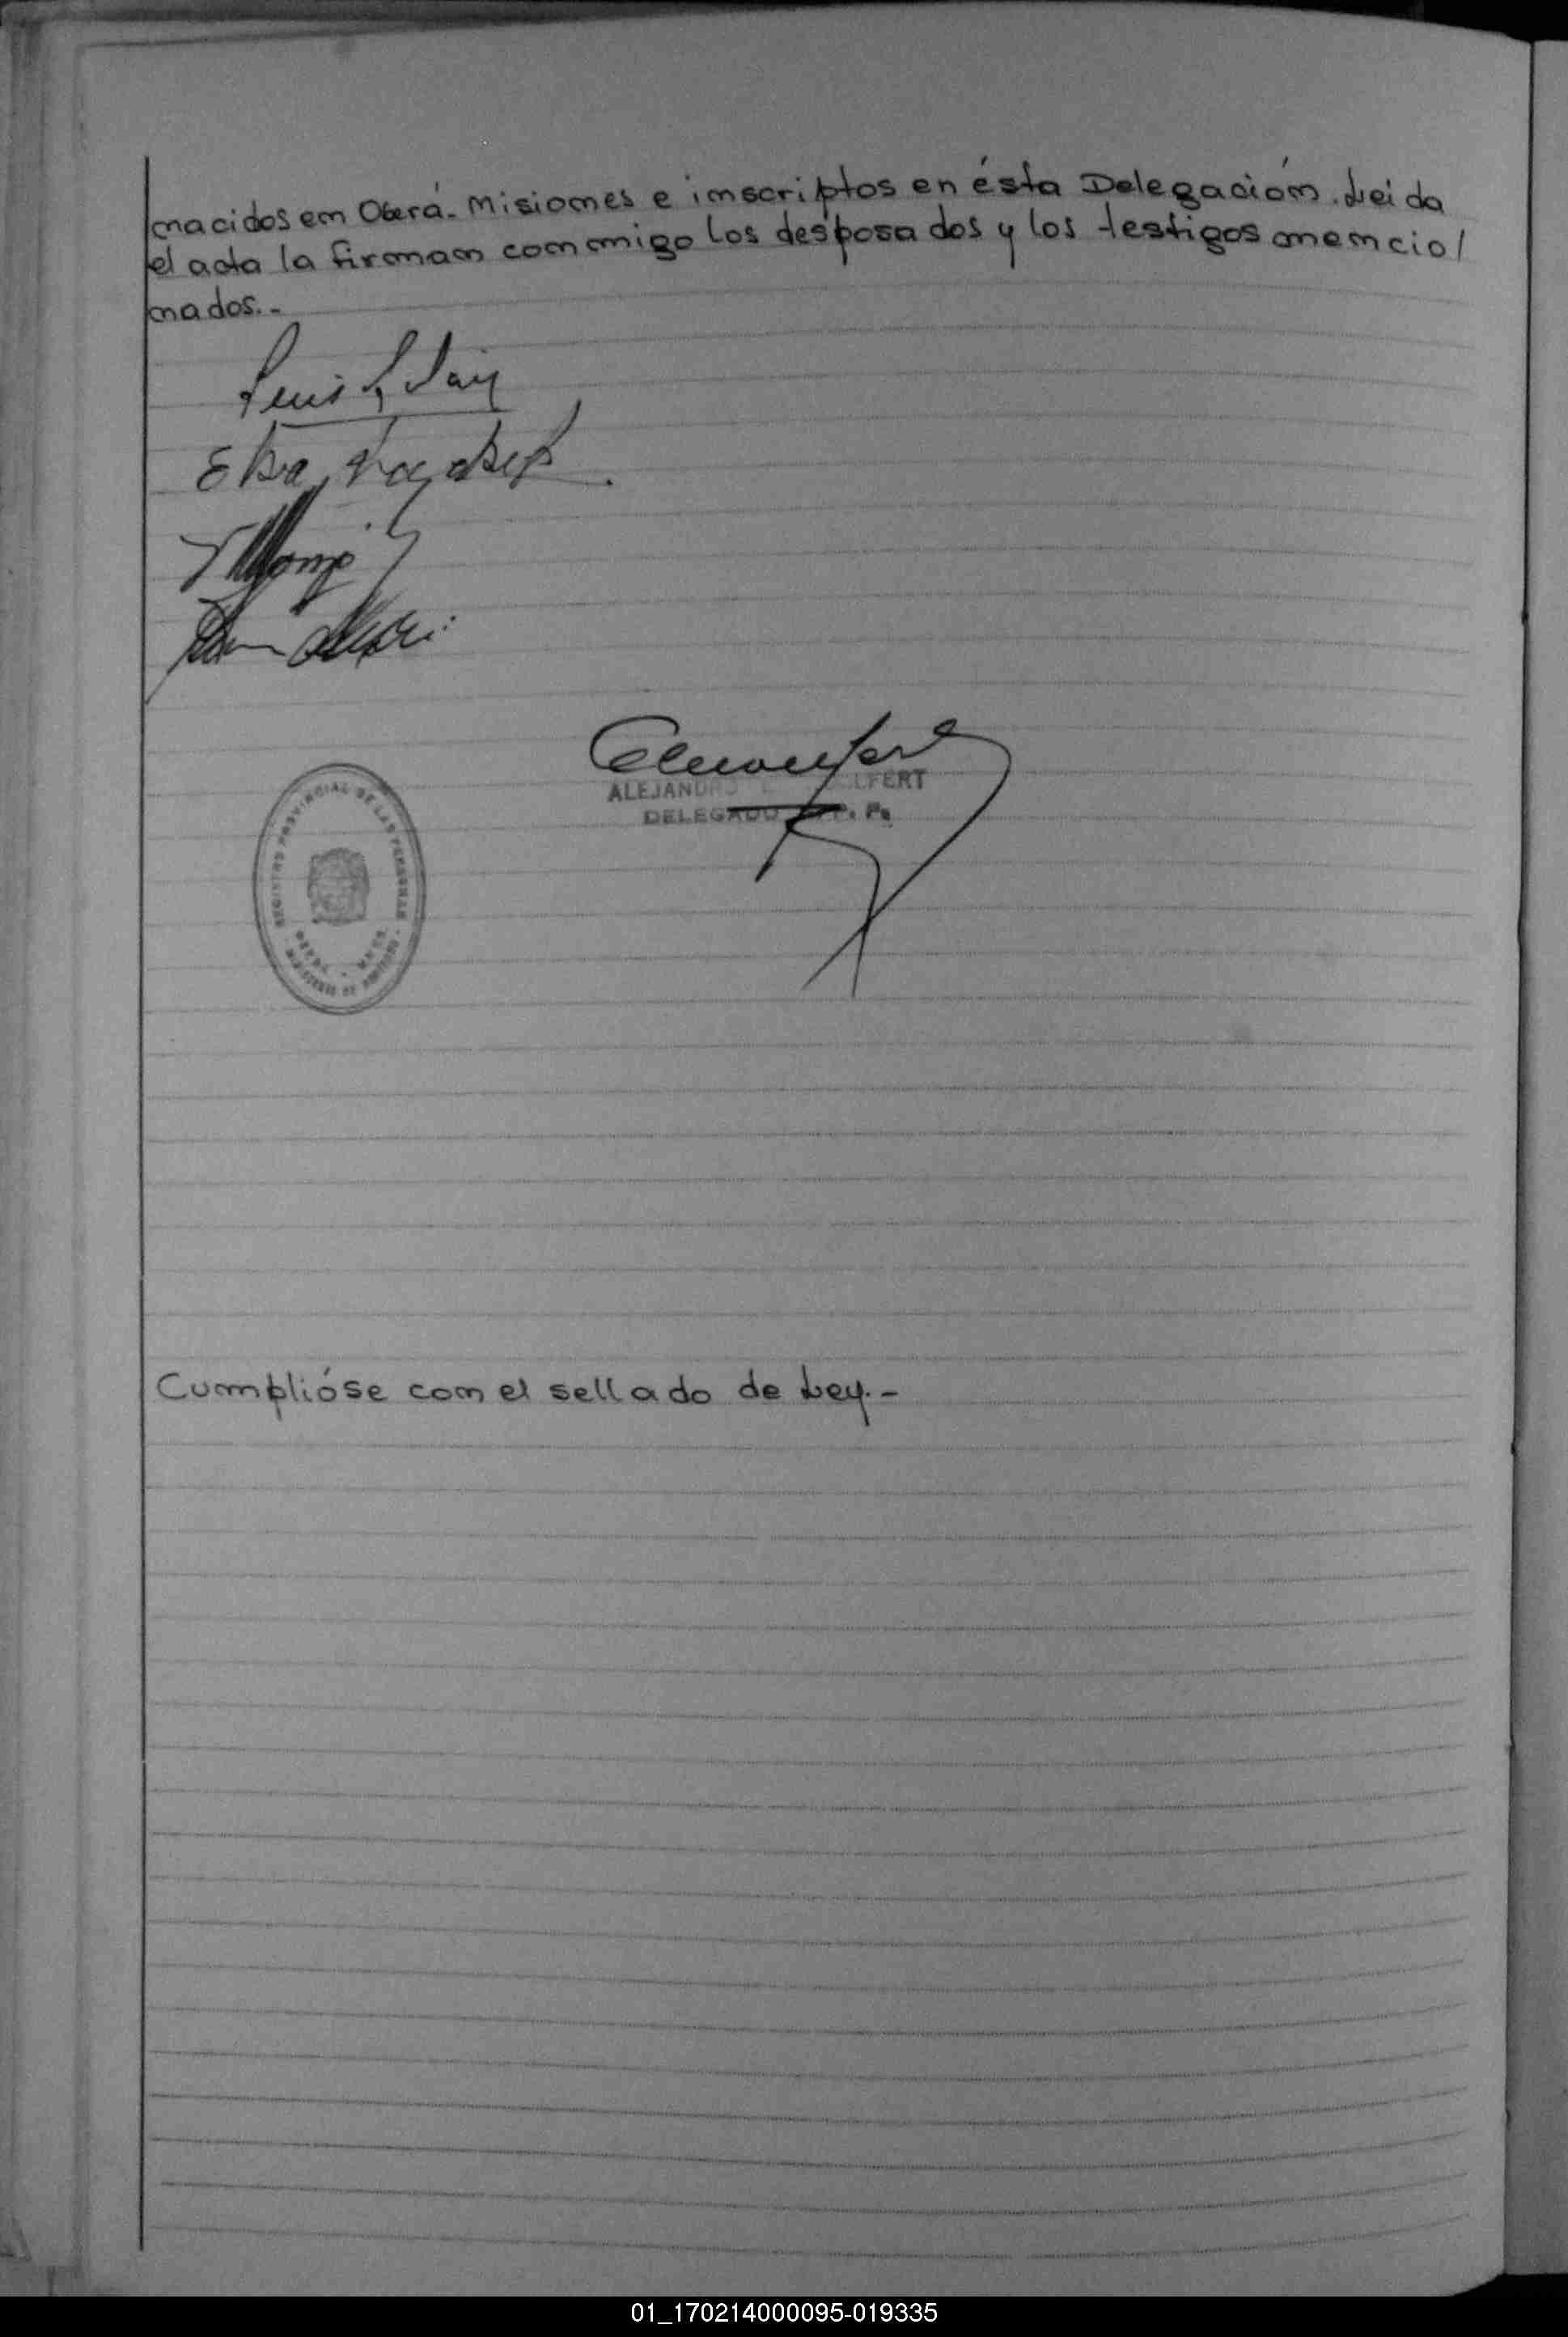 nacidos en Oberá-Misiones e inscriptos en ésta Delegación. Leida
el acta la firman conmigo los desposados y los testigos mencio/
nados.-
Luis
Elsa
ALEJANDRO LFERT
DELEGADO P. P.
REGISTRO PROVINCIAL DE LAS PERSONAS
Cumplióse con el sellado de Ley.-
01_170214000095-019335